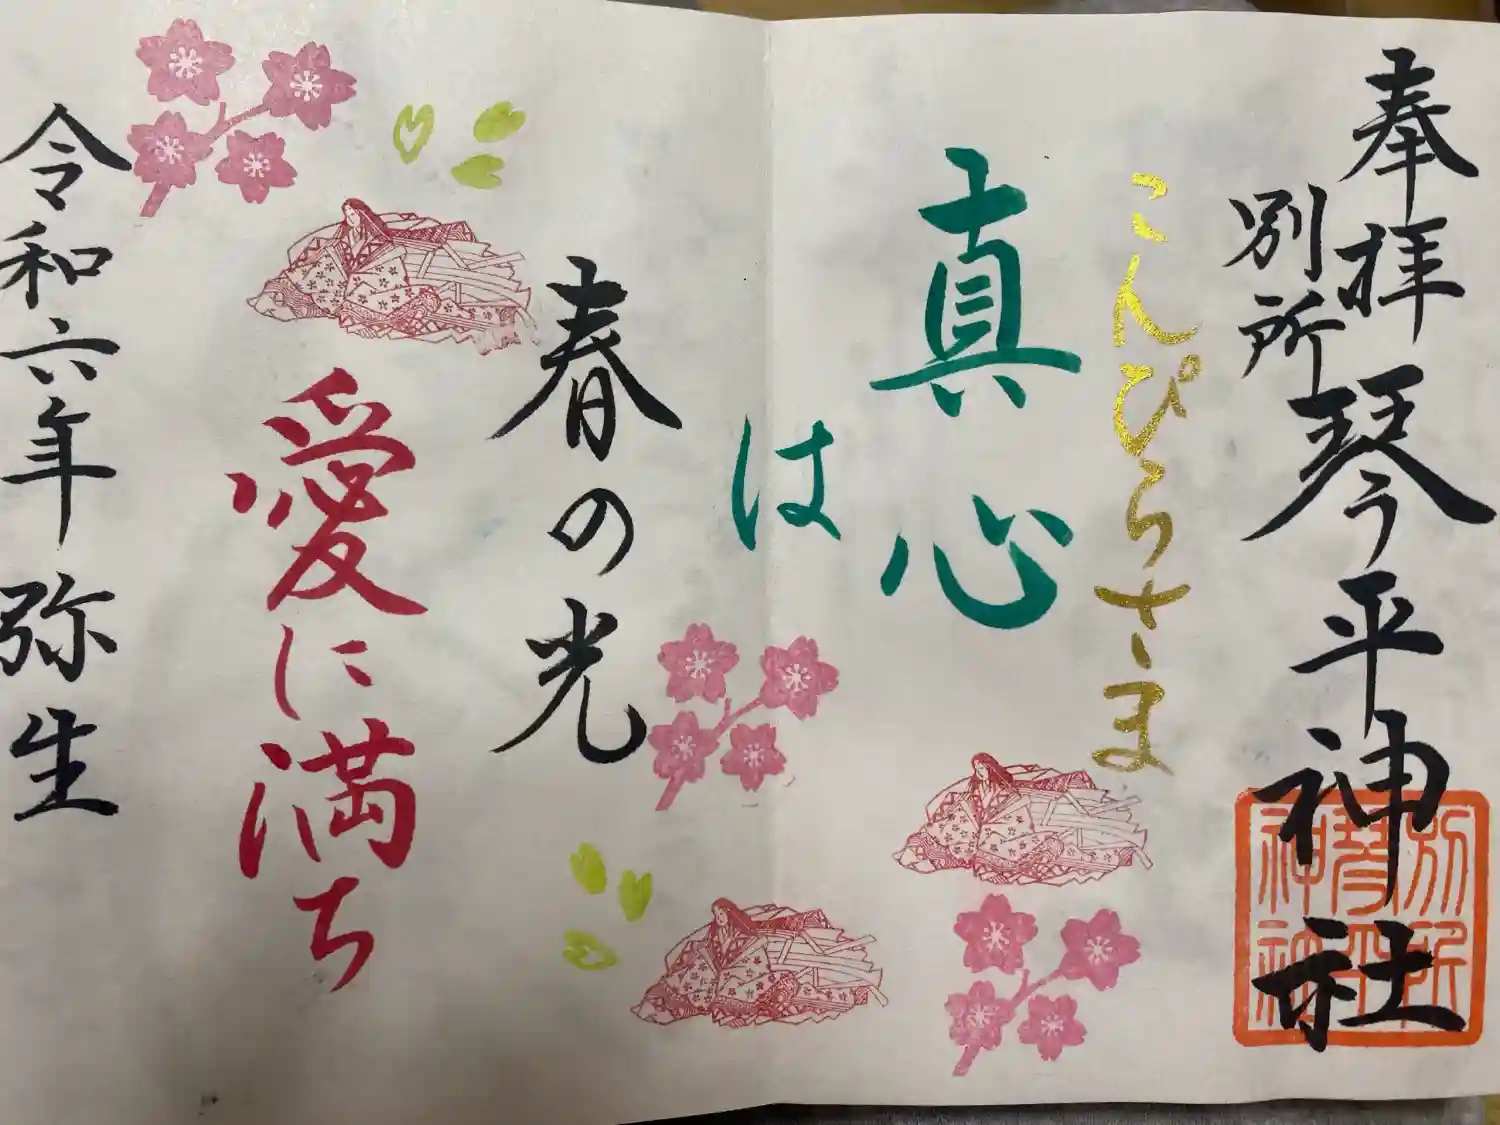 奉拝
別所
琴平神社
別所琴平神社
こんぴらさま
真心
は
春の光
愛に満ち
令和六年 弥生